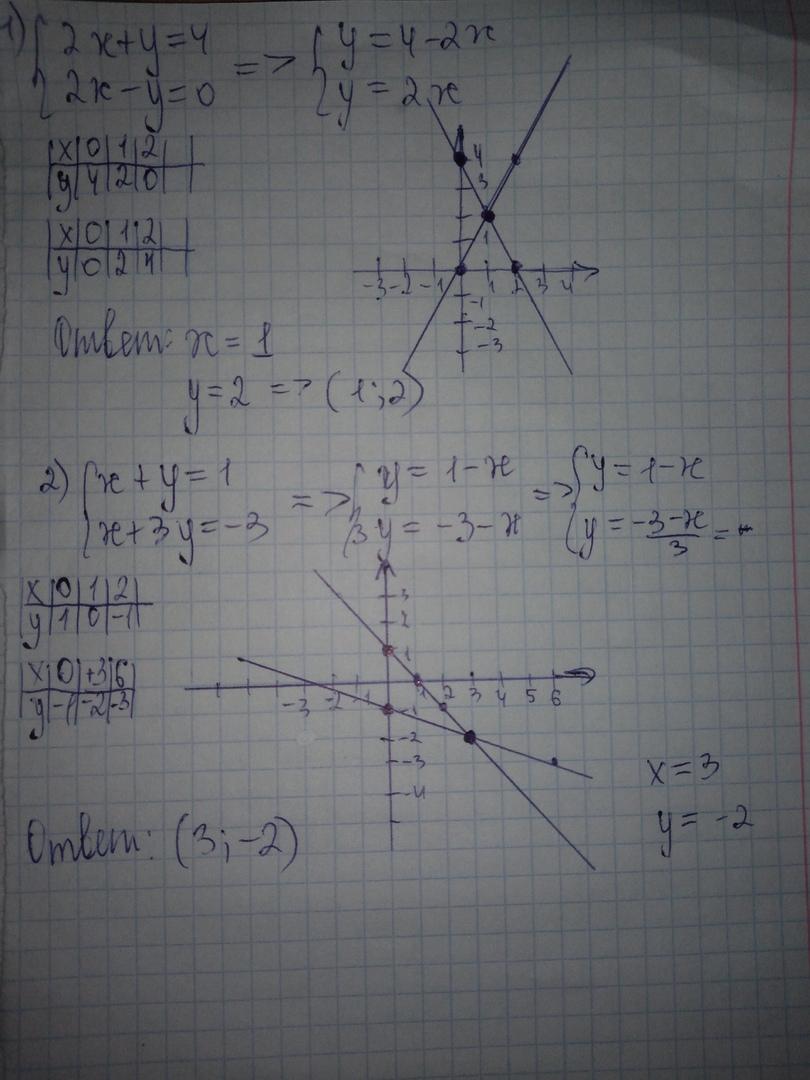 1) { 2x+y=4 => { y=4-2x
{ 2x-y=0 { y=2x
x 0 1 2
y 4 2 0
x 0 1 2
y 0 2 4
4
3
1
-3 -2 -1 1 2 3 4
-1
-2
-3
Ответ: x=1
y=2 => (1;2)
2) { x+y=1 => { y=1-x => { y=1-x
{ x+3y=-3 { 3y=-3-x { y=(-3-x)/3=-
x 0 1 2
y 1 0 -1
x 0 +3 6
y -1 -2 -3
3
2
1
-3 -2 -1 1 2 3 4 5 6
-1
-2
-3
-4
x=3
y=-2
Ответ: (3;-2)